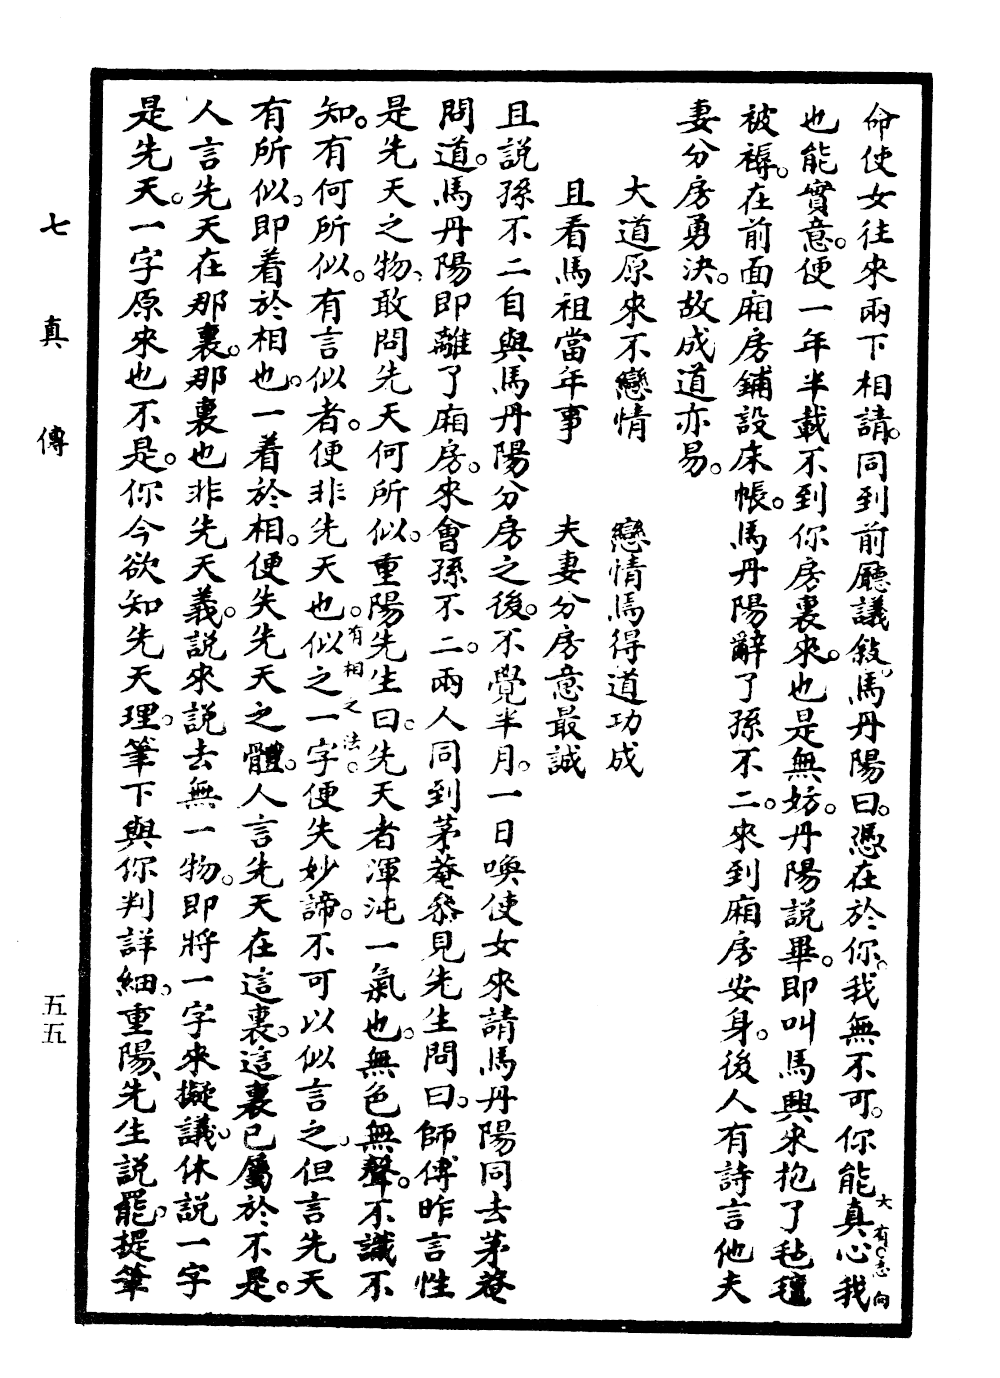 命使女往來兩下相請。同到前廳議敍。馬丹陽曰。憑在於你。我無不可。你能真心我
大有志向
也能實意。便一年半載不到你房裏來。也是無妨。丹陽説畢。即叫馬興來抱了毡毯
被褥。在前面廂房鋪設床帳。馬丹陽辭了孫不二。來到廂房安身。後人有詩言他夫
妻分房勇決。故成道亦易。
大道原來不戀情　戀情焉得道功成
且看馬祖當年事　夫妻分房意最誠
且説孫不二自與馬丹陽分房之後。不覺半月。一日喚使女來請馬丹陽同去茅菴
問道。馬丹陽即離了廂房。來會孫不二。兩人同到茅菴叅見先生問曰。師傅昨言性
是先天之物、敢問先天何所似。重陽先生曰。先天者渾沌一氣也。無色無聲。不識不
知。有何所似。有言似者。便非先天也。似之一字便失妙諦。不可以似言之、但言先天
有相之法。
有所似、即着於相也。一着於相。便失先天之體。人言先天在這裏。這裏已屬於不是。
人言先天在那裏。那裏也非先天義。説來説去無一物。即將一字來擬議。休説一字
是先天。一字原來也不是。你今欲知先天理。筆下與你判詳細。重陽先生説罷。提筆
七真傳
五五